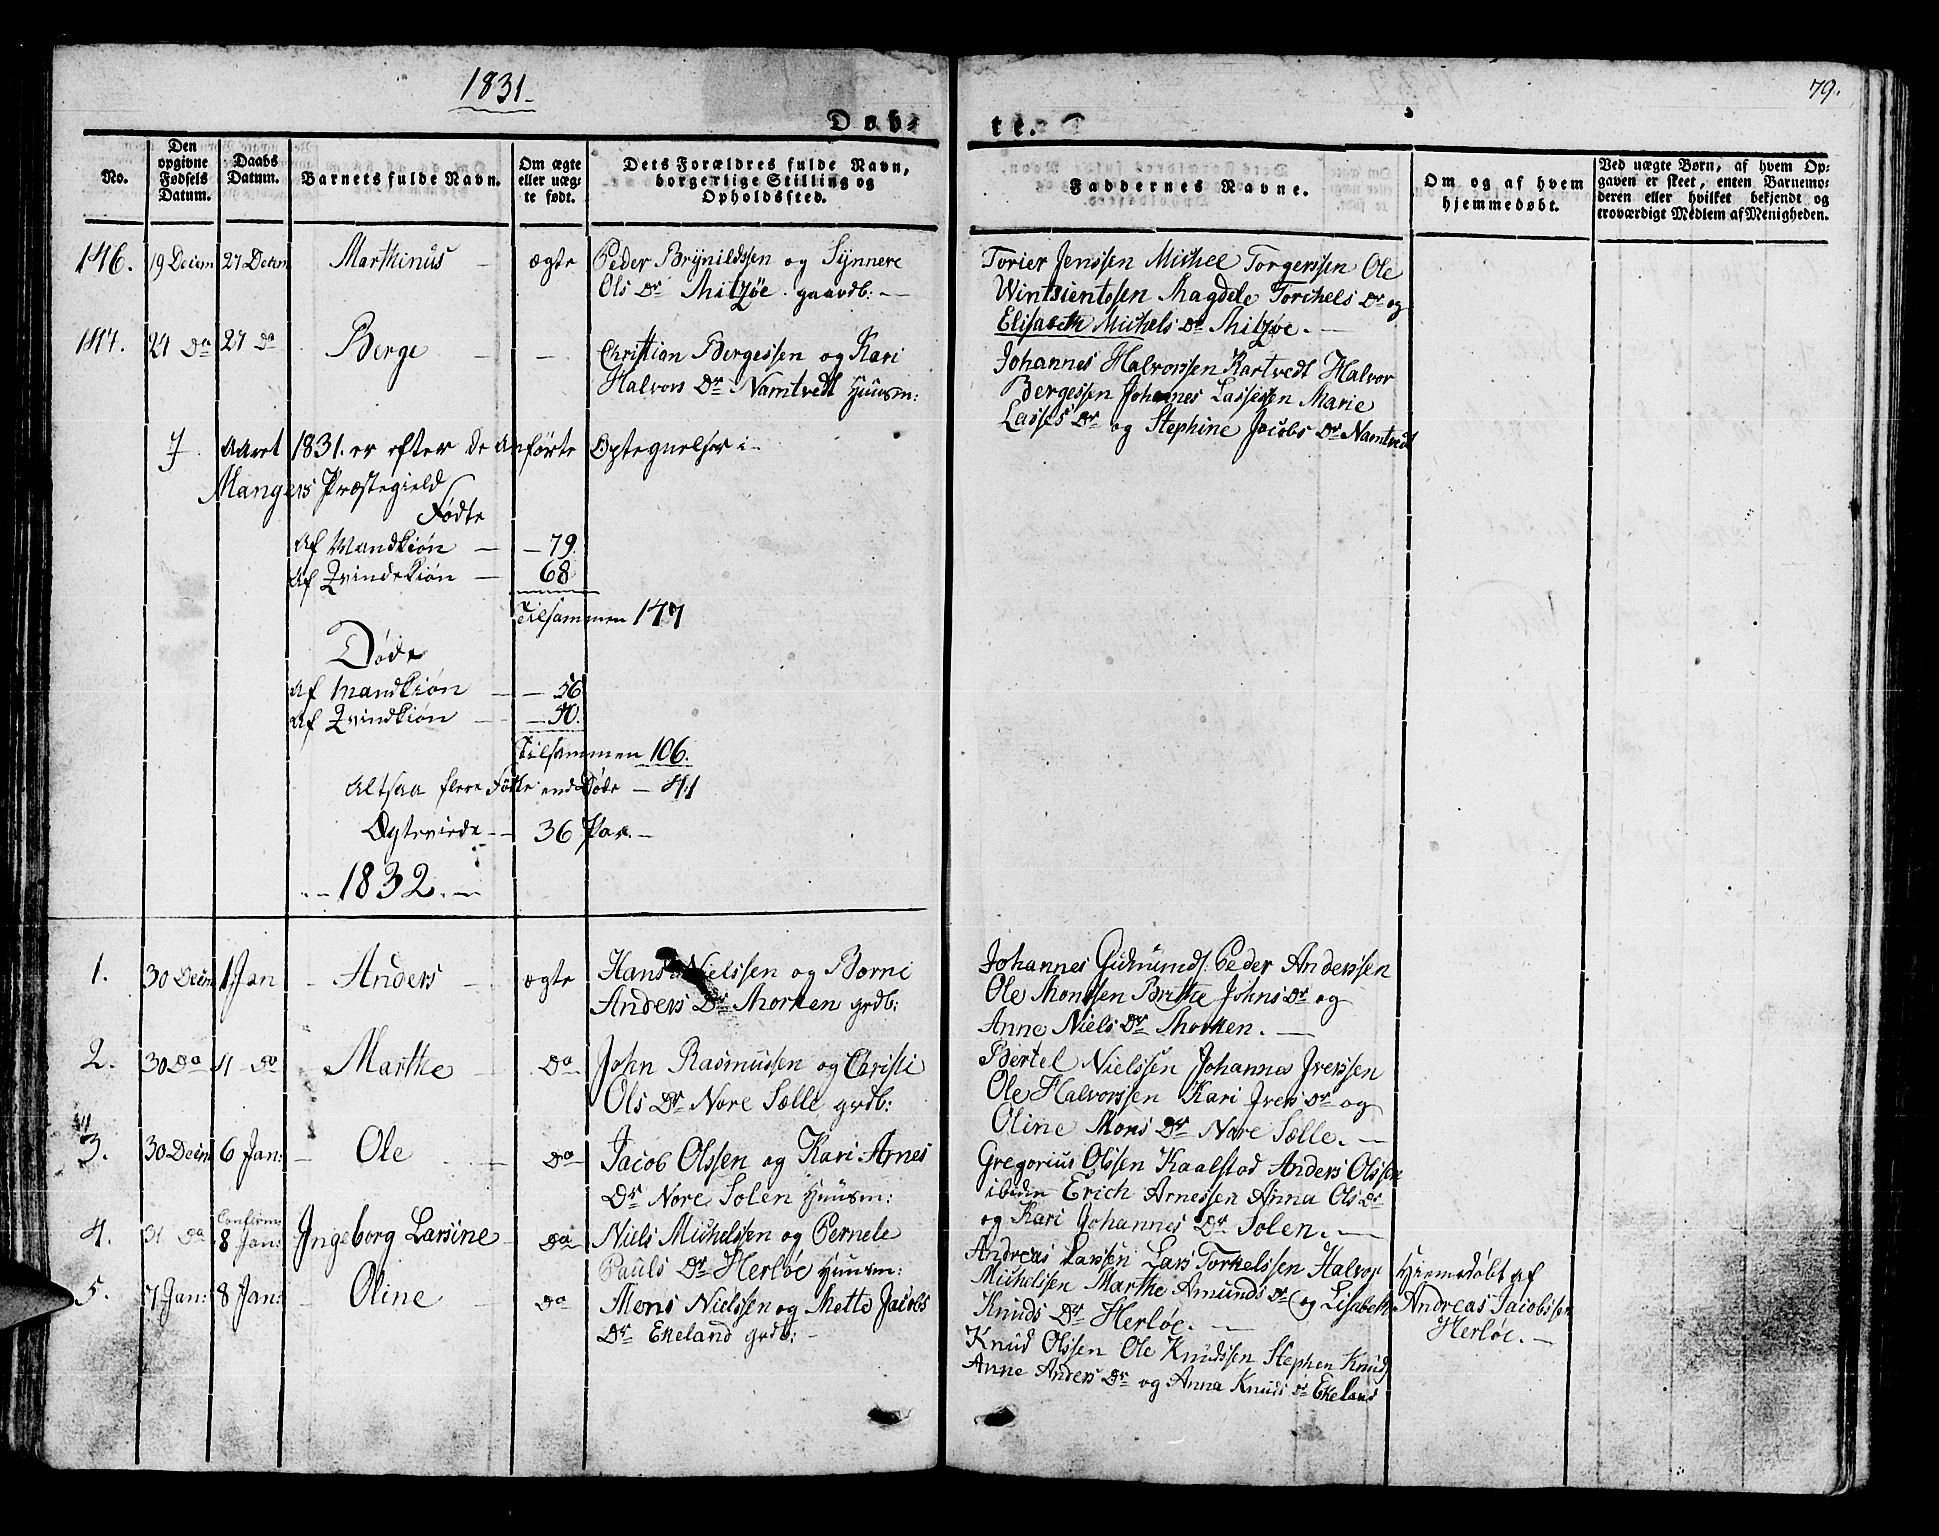 1831.
79.
Døb-
te.
No.
Den opgivne Fødsels Datum.
Daabs Datum.
Barnets fulde Navn.
Om ægte eller uæg- te født.
Dets Forældres fulde Navn, borgerlige Stilling og Opholdssted.
Faddernes Navne.
Om og af hvem hjemmedøbt.
Ved uægte Børn, af hvem Op-
gaven er skeet, enten Barnemo-
deren eller hvilket bekjendt og
troværdigt Medlem af Menigheden.
146. 19 Decem 27 Decem Marthinus - ægte Peder Brynildssen og Synnere
Ols Dr Miltzøe gaardb: -
Torier Jenssen Michel Torgerssen Ole
Wintsientssen Magdele Torchels Dr og
Elisabeth Michels Dr Miltzøe. -
147. 24 Do 27 Do Berge - - Christian Bergessen og Kari
Halvors Dr Namtvedt Huusm:
Johannes Halvorssen Kartvedt Halvor
Bergessen Johannes Lassessen Marie
Lasses Dr og Stephine Jacobs Dr Namtvedt
I Aaret 1831. er efter de anførte Optegnelser i -
Mangers Præstegield
Fødte
Af Mandkiøn - - 79.
Af Qvindekiøn - 68
Tilsammen 147
Døde
Af Mandkiøn - - 56
Af Qvindkiøn - - 50.
Tilsammen 106.
Altsaa flere Fødte end Døde - 41
Ægteviede - - 36 Par. -
- 1832. -
1. 30 Decem 1 Jan - Anders - ægte Hans Nielssen og Børni
Anders Dr Morken grdb:
Johannes Gidmunds. Peder Anderssen
Ole Monssen Brithe Johns Dr og
Anne Niels Dr Morken. -
2. 30 Do 1 - Do Marthe - Do John Rasmussen og Christi
Ols Dr Nore Sælle grdb:
Bertel Nielssen Johannes Iverssen
Ole Halvorssen Kari Ivers Dr og
Oline Mons Dr Nore Sælle. -
3. 30 Decem 6 Jan: - Ole - Do Jacob Olssen og Kari Arnes
Dr Nore Solen Huusm:
Gregorius Olssen Kaalstad Anders Olssen
ibiden Erich Arnessen Anna Ols Dr
og Kari Johannes Dr Solen. -
4. 31 Do Confirm: 8 Jan: Ingeborg Larsine - Do Niels Michelssen og Pernele
Pauls Dr Herløe Huusm:
Andreas Larssen Lars Torkelssen Halvor
Michelssen Marthe Amunds Dr og Lisabeth
Knuds Dr Herløe. -
Hiemedøbt af
Andreas Jacobssen
Herløe. -
5. 7 Jan: 8 Jan: - Oline - Do Mons Nielssen og Mette Jacobs
Dr Ekeland grdb: -
Knud Olssen Ole Knudssen Stephen Knuds
Anne Anders Dr og Anna Knuds Dr Ekeland